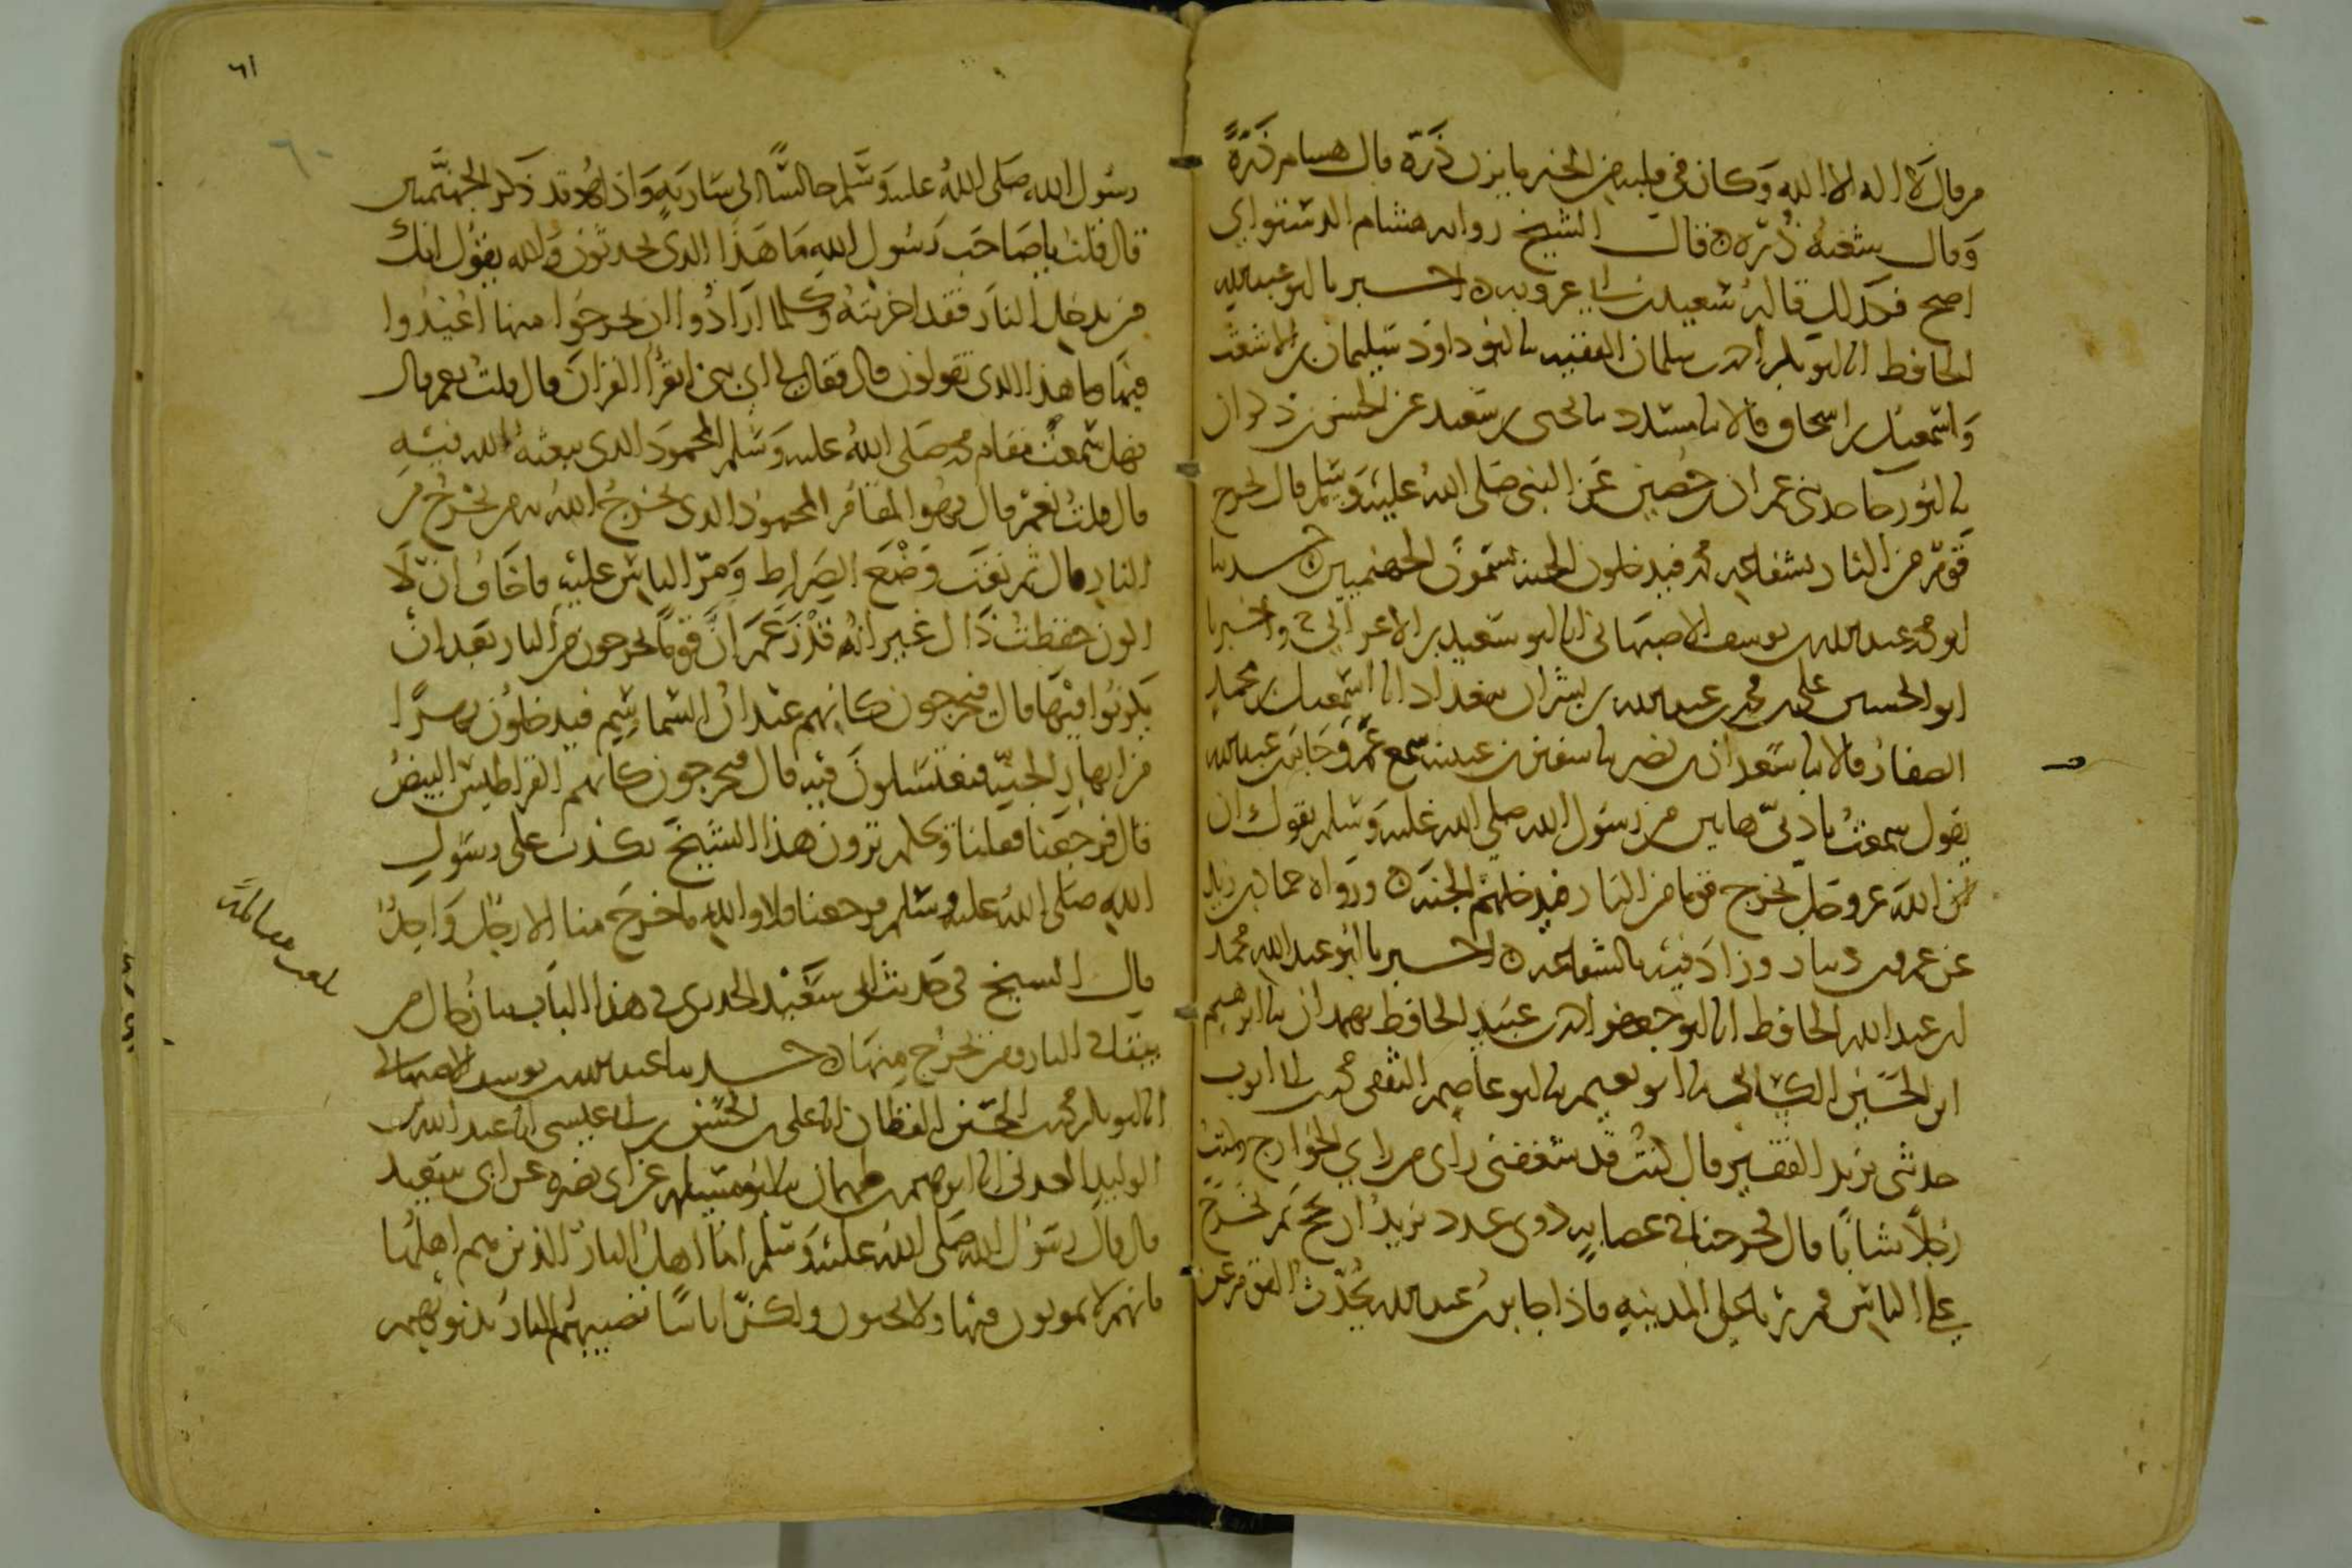 من قال لا اله الا الله وكان في قلبه من الخير ما يزن ذرة قال هشام ذرة
وقال شعبه ذُرَه قال الشيخ روايه هشام الدستوائي
اصح فكذلك قاله سعيد بن ابي عروبه اخبرنا ابو عبد الله
الحافظ انا ابو بكر احمد بن سلمان الفقيه نا ابو داود سليمان بن الاشعث
واسمعيل بن اسحاق قالا نا مسدد نا يحيى بن سعيد عن الحسن بن ذكوان
نا ابو رجا حدثني عمران بن حصين عن النبي صلى الله عليه وسلم قال يخرج
قوم من النار بشفاعه محمد فيدخلون الجنه يسمون الجهنميين حدثنا
ابو محمد عبد الله بن يوسف الاصبهاني انا ابو سعيد بن الاعرابي ح واخبرنا
ابو الحسين علي بن محمد بن عبد الله بن بشران ببغداد انا اسمعيل بن محمد
الصفار قالا نا سعدان بن نصر نا سفين بن عيينه سمع عمرو جابر بن عبد الله
يقول سمعت باذني هاتين من رسول الله صلى الله عليه وسلم يقول ان
الله عز وجل يخرج قوما من النار فيدخلهم الجنه ورواه حماد بن زيد
عن عمرو بن دينار وزاد فيه بالشفاعه اخبرنا ابو عبد الله محمد
بن عبد الله الحافظ انا ابو جعفر احمد بن عبيد الحافظ بهمدان نا ابرهيم
ابن الحسين الكسائي نا ابو نعيم نا ابو عاصم الثقفي محمد بن ابي ايوب
حدثني يزيد الفقير قال كنت قد شغفني رأي من راي الخوارج وكنت
رجلا شابا قال فخرجنا في عصابه ذوي عدد نريد ان نحج ثم نخرج
على الناس فمررنا على المدينه فاذا جابر بن عبد الله يحدث القوم عن
٦١
رسول الله صلى الله عليه وسلم جالسا الى ساريه واذا هو قد ذكر الجهنميين
قال قلت يا صاحب رسول الله ما هذا الذي تحدثون والله يقول انك
من يدخل النار فقد اخزيته وكلما ارادوا ان يخرجوا منها اعيدوا
فيها ما هذا الذي تقولون قال فقال لي اي بني اتقرا القران قال قلت نعم قال
فهل سمعت مقام محمد صلى الله عليه وسلم المحمود الذي يبعثه الله فيه
قال قلت نعم قال فهو المقام المحمود الذي يخرج الله به من يخرج من
النار قال ثم نعت وضع الصراط ومر الناس عليه فاخاف ان لا
اكون حفظت ذاك غير انه قد زعم ان قوما يخرجون من النار بعد ان
يكونوا فيها قال فيخرجون كانهم عيدان السماسم فيدخلون نهرا
من انهار الجنه فيغتسلون فيه قال فيخرجون كانهم القراطيس البيض
قال فرجعنا فقلنا ويحكم ترون هذا الشيخ يكذب على رسول
الله صلى الله عليه وسلم فرجعنا فلا والله ما خرج منا الا رجل واحد
قال الشيخ في حديث ابي سعيد الخدري في هذا الباب بيان حال من
يبقا في النار ومن يخرج منها حدثنا عبد الله بن يوسف الاصبهاني
انا ابو بكر محمد بن الحسين القطان انا علي بن الحسن بن ابي عيسى انا عبد الله بن
الوليد العدني انا ابرهيم بن طهمان نا ابو مسلمه عن ابي نضره عن ابي سعيد
قال قال رسول الله صلى الله عليه وسلم اما اهل النار الذين هم اهلها
فانهم لا يموتون فيها ولا يحيون ولكن اناسا تصيبهم النار بذنوبهم